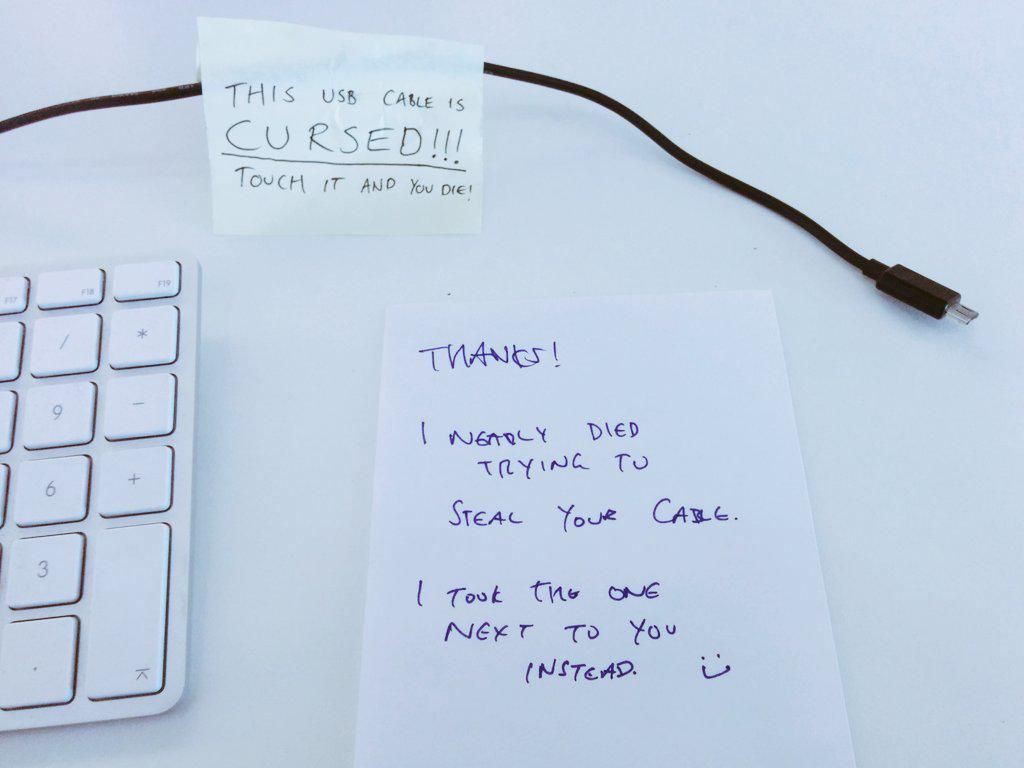 THIS USB CABLE IS
CURSED!!!
TOUCH IT AND YOU DIE!
F17
F18
F19
/
*
9
-
6
+
3
.
THANKS!
I NEARLY DIED
TRYING TO
STEAL YOUR CABLE.
I TOOK THE ONE
NEXT TO YOU
INSTEAD. :)